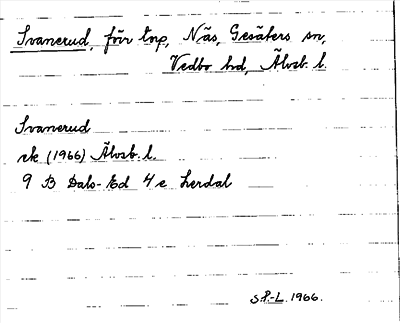 Svanerud, förr torp, Näs, Gesäters sn,
Vedbo hd, Älvsb. l.
Svanerud
ek (1966) Älvsb. l.
9 B Dals-Ed 4 e Lerdal
SP.-L. 1966.